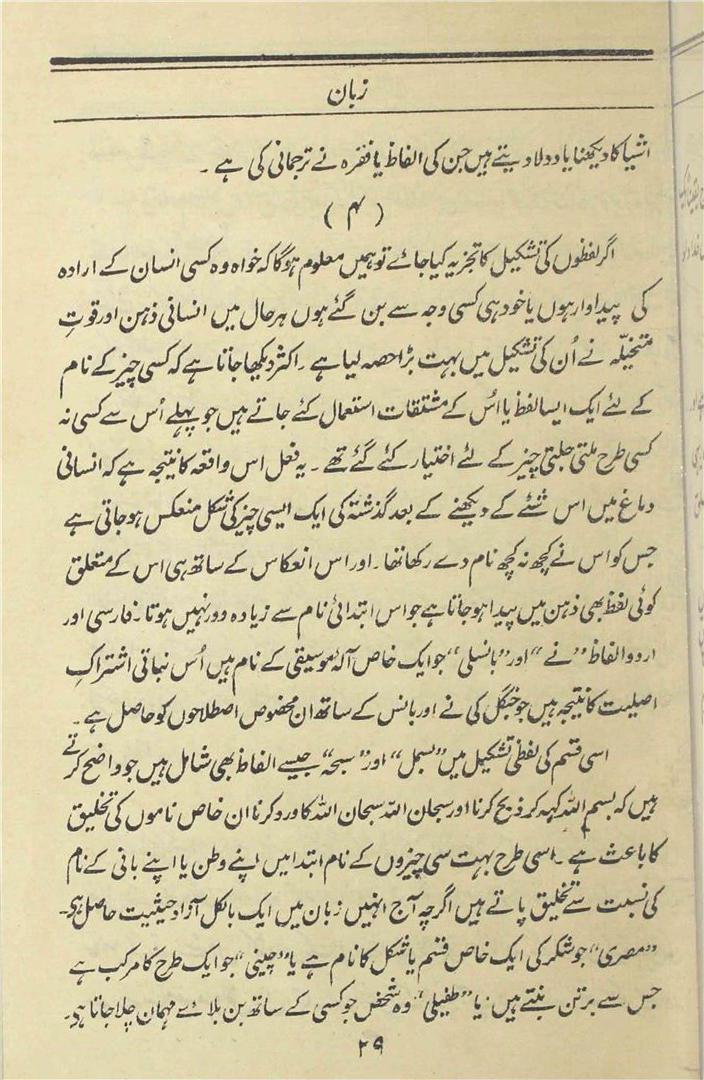 زبان
اشیا کا دیکھنا یاد دلا دیتے ہیں جن کی الفاظ یا فقرہ نے ترجمانی کی ہے ۔
( ۴ )
اگر لفظوں کی تشکیل کا تجزیہ کیا جائے تو ہمیں معلوم ہوگا کہ خواہ وہ کسی انسان کے ارادہ
کی پیداوار ہوں یا خود ہی کسی وجہ سے بن گئے ہوں ہر حال میں انسانی ذہن اور قوتِ
متخیلّہ نے اُن کی تشکیل میں بہت بڑا حصہ لیا ہے ۔ اکثر دیکھا جاتا ہے کہ کسی چیز کے نام
کے لئے ایک ایسا لفظ یا اُس کے مشتقات استعمال کئے جاتے ہیں جو پہلے اُس سے کسی نہ
کسی طرح ملتی جلتی چیز کے لئے اختیار کئے گئے تھے ۔ یہ فعل اس واقعہ کا نتیجہ ہے کہ انسانی
دماغ میں اس شئے کے دیکھنے کے بعد گذشتہ کی ایک ایسی چیز کی شکل منعکس ہو جاتی ہے
جس کو اس نے کچھ نہ کچھ نام دے رکھا تھا ۔ اور اس انعکاس کے ساتھ ہی اس کے متعلق
کوئی لفظ بھی ذہن میں پیدا ہو جاتا ہے جو اس ابتدائی نام سے زیادہ دور نہیں ہوتا ۔ فارسی اور
اردو الفاظ ”نے“ اور ”بانسلی“ جو ایک خاص آلۂ موسیقی کے نام ہیں اُس نباتی اشتراکِ
اصلیت کا نتیجہ ہیں جو جنگل کی نے اور بانس کے ساتھ ان مخصوص اصطلاحوں کو حاصل ہے ۔
اسی قسم کی لفظی تشکیل میں ”بسمل“ اور ”سبحہ“ جیسے الفاظ بھی شامل ہیں جو واضح کرتے
ہیں کہ بسم اللہ کہہ کر ذبح کرنا اور سبحان اللہ سبحان اللہ کا ورد کرنا ان خاص ناموں کی تخلیق
کا باعث ہے ۔ اسی طرح بہت سی چیزوں کے نام ابتدا میں اپنے وطن یا اپنے بانی کے نام
کی نسبت سے تخلیق پاتے ہیں اگرچہ آج انہیں زبان میں ایک بالکل آزاد حیثیت حاصل ہے ۔
”مصری“ جو شکر کی ایک خاص قسم یا شکل کا نام ہے یا ”چینی“ جو ایک طرح کا مرکب ہے
جس سے برتن بنتے ہیں ۔ یا ”طفیلی“ وہ شخص جو کسی کے ساتھ بن بلائے مہمان چلا جاتا ہے ۔
۲۹